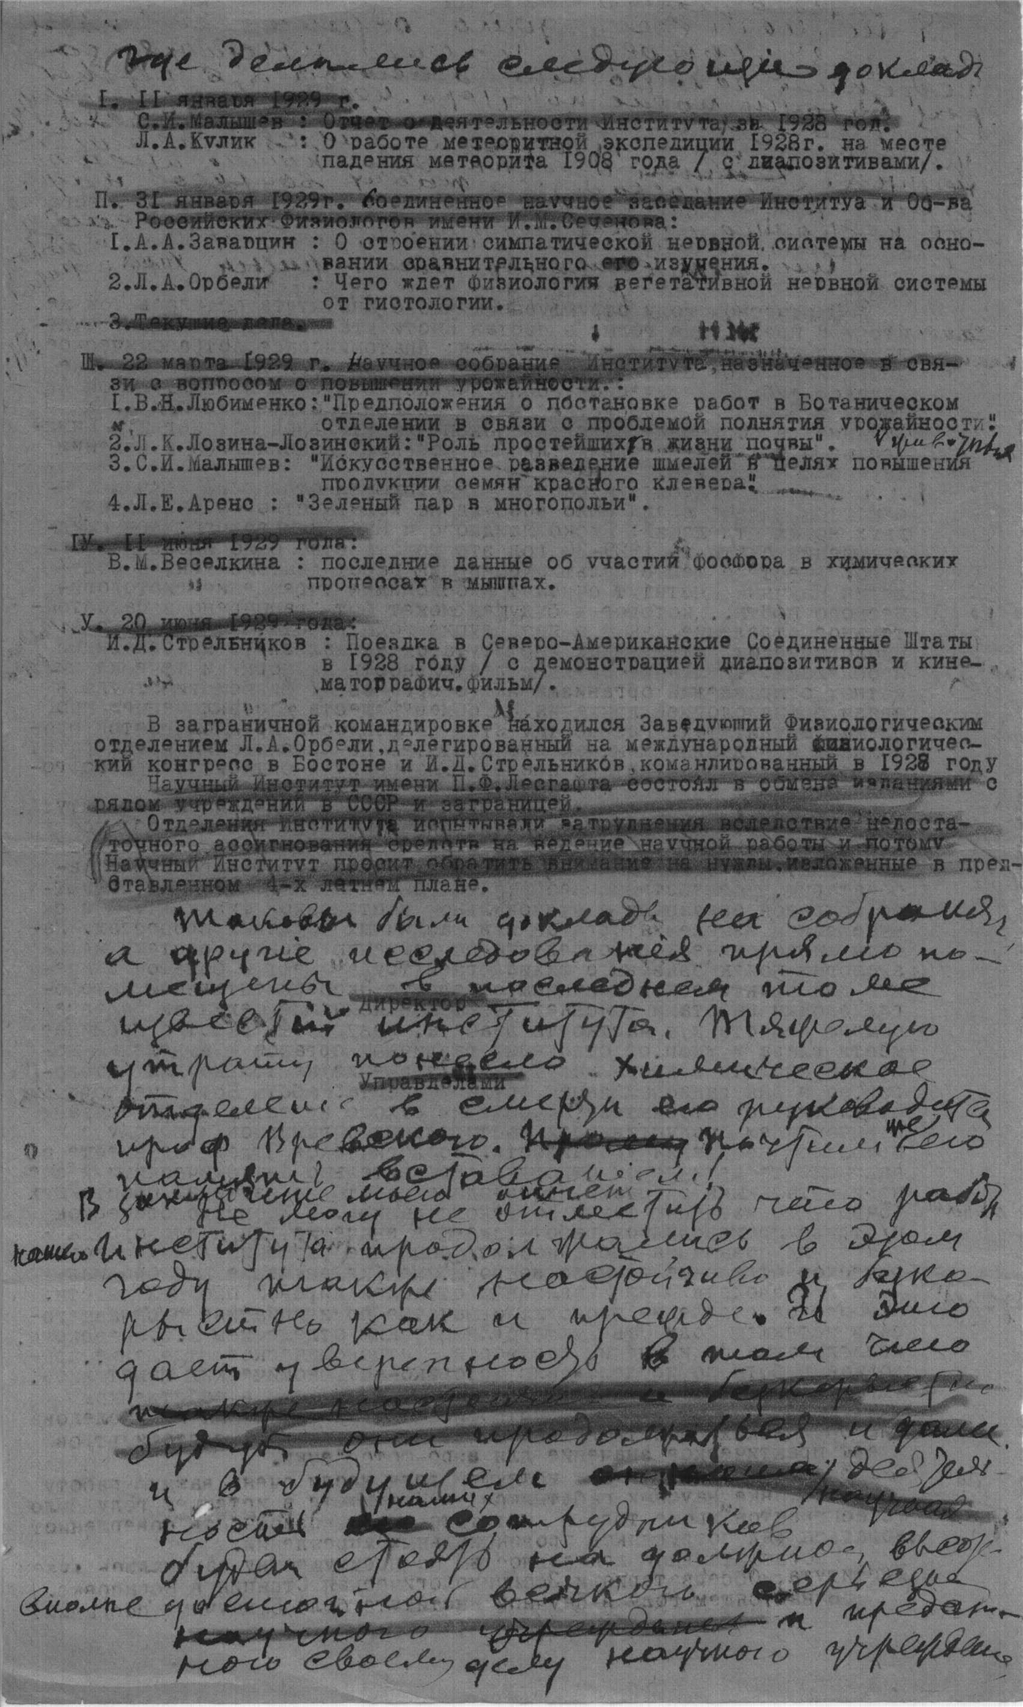 где делались следующие доклады
I. II января 1929 г.
С.И.Малышев : Отчет о деятельности Института за 1928 год.
Л.А.Кулик : О работе метеоритной экспедиции 1928г. на месте
падения метеорита 1908 года / с диапозитивами/.
П. 31 января 1929г. Соединенное научное заседание Институа и Об-ва
Российских Физиологов имени И.М.Сеченова:
I.А.А.Заварцин : О строении симпатической нервной системы на осно-
вании сравнительного его изучения.
2.Л.А.Орбели : Чего ждет физиология вегетативной нервной системы
от гистологии.
3.Текущие дела.
Ш. 22 марта 1929 г. Научное собрание Института, назначенное в свя-
зи с вопросом о повышении урожайности.:
I.В.Н.Любименко:"Предположения о постановке работ в Ботаническом
отделении в связи с проблемой поднятия урожайности".
2.Л.К.Лозина-Лозинский:"Роль простейших в жизни почвы".
3.С.И.Малышев: "Искусственное разведение шмелей в целях повышения
продукции семян красного клевера".
4.Л.Е.Аренс : "Зеленый пар в многопольи".
IУ. II июня 1929 года:
В.М.Веселкина : последние данные об участии фосфора в химических
процессах в мышцах.
У. 20 июня 1929 года:
И.Д.Стрельников : Поездка в Северо-Американские Соединенные Штаты
в 1928 году / с демонстрацией диапозитивов и кине-
маторрафич.фильм/.
В заграничной командировке находился Заведующий Физиологическим
отделением Л.А.Орбели,делегированный на международный физиологичес-
кий конгресс в Бостоне и И.Д.Стрельников,командированный в 1928 году
Научный Институт имени П.Ф.Лесгафта состоял в обмене изданиями с
рядом учреждений в СССР и заграницей.
Отделения Института испытывали затруднения вследствие недоста-
точного ассигнования средств на ведение научной работы и потому
Научный Институт просит обратить внимание на нужды,изложенные в пред-
ставленном 4-х летнем плане.
таковы были доклады на собраниях,
а другие исследования прямо по-
мещены в последнем томе
Директор
известий института. Тяжелую
утрату понесло химическое
Управделами
отделение в смерти его руководителя
проф Вревского. почтим же его
память вставанием!
В заключение моего отчета
не могу не отметить что работы
нашего Института продолжались в этом
году также настойчиво и беско-
рыстно как и прежде. И это
дает уверенность в том что
также настойчиво и бескорыстно
будут они продолжаться и далее
и в будущем деятель-
научная
ность наших сотрудников
будет стоять на должной высоте
вполне достойной
научного учреждения и предан-
ного своему делу научного учреждения